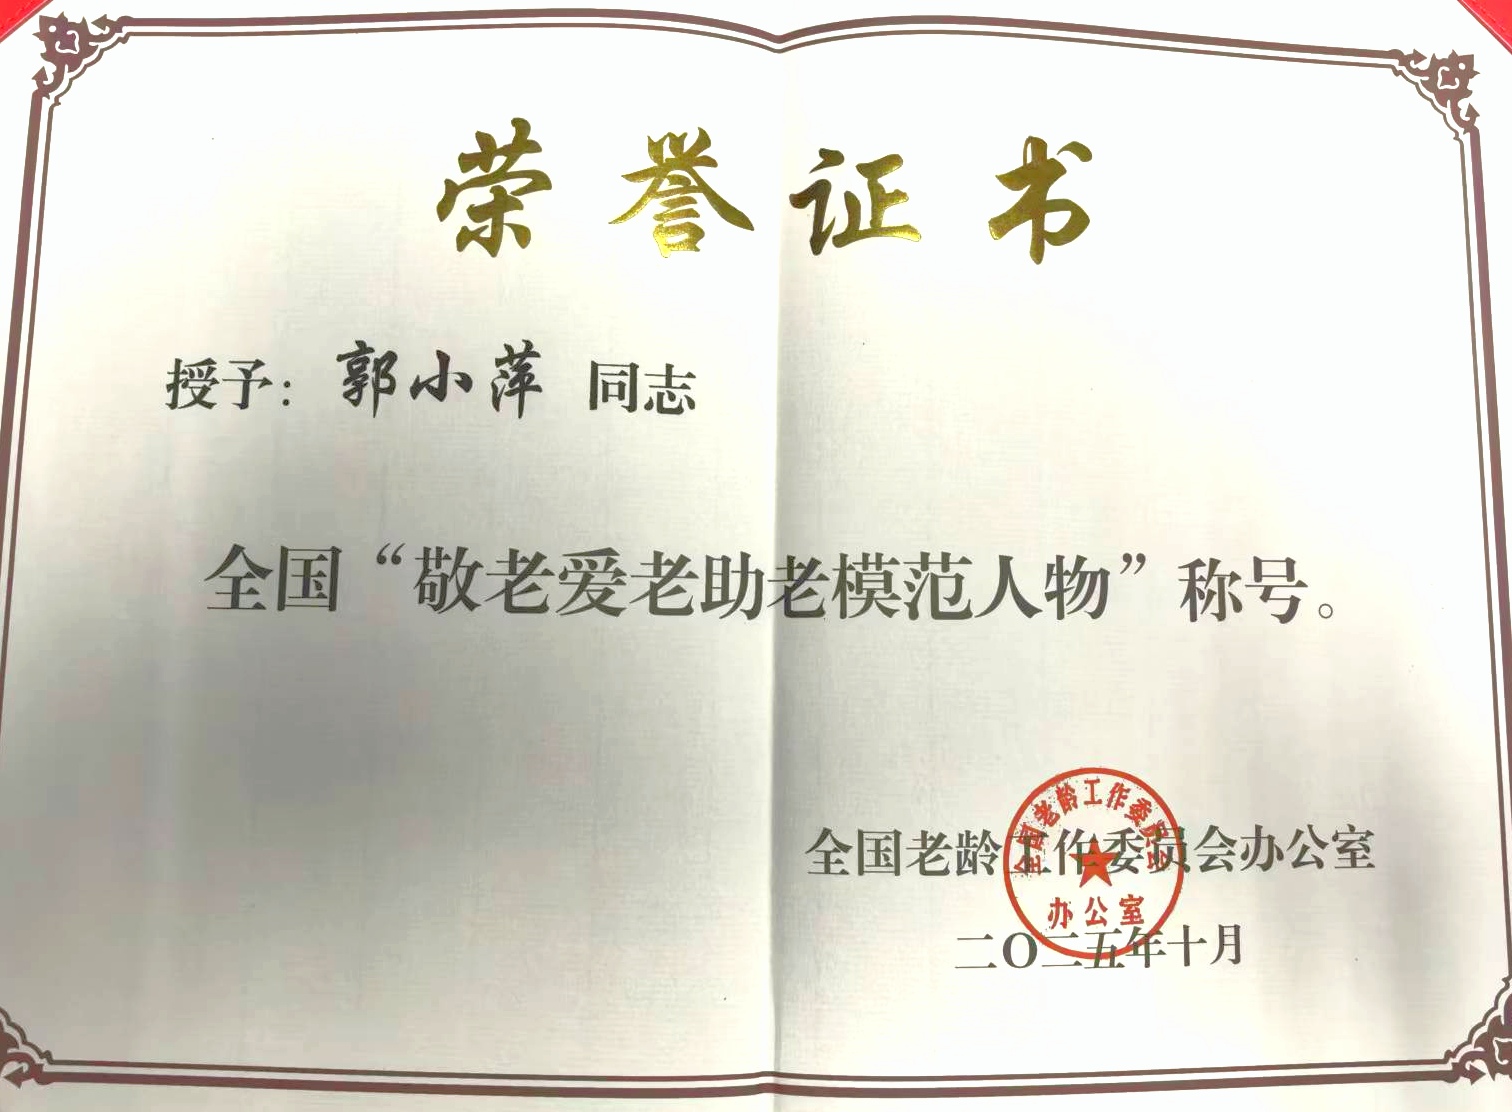 荣誉证书
授予：郭小萍 同志
全国“敬老爱老助老模范人物”称号。
全国老龄工作委员会办公室
二〇二五年十月
全国老龄工作委员会
办公室